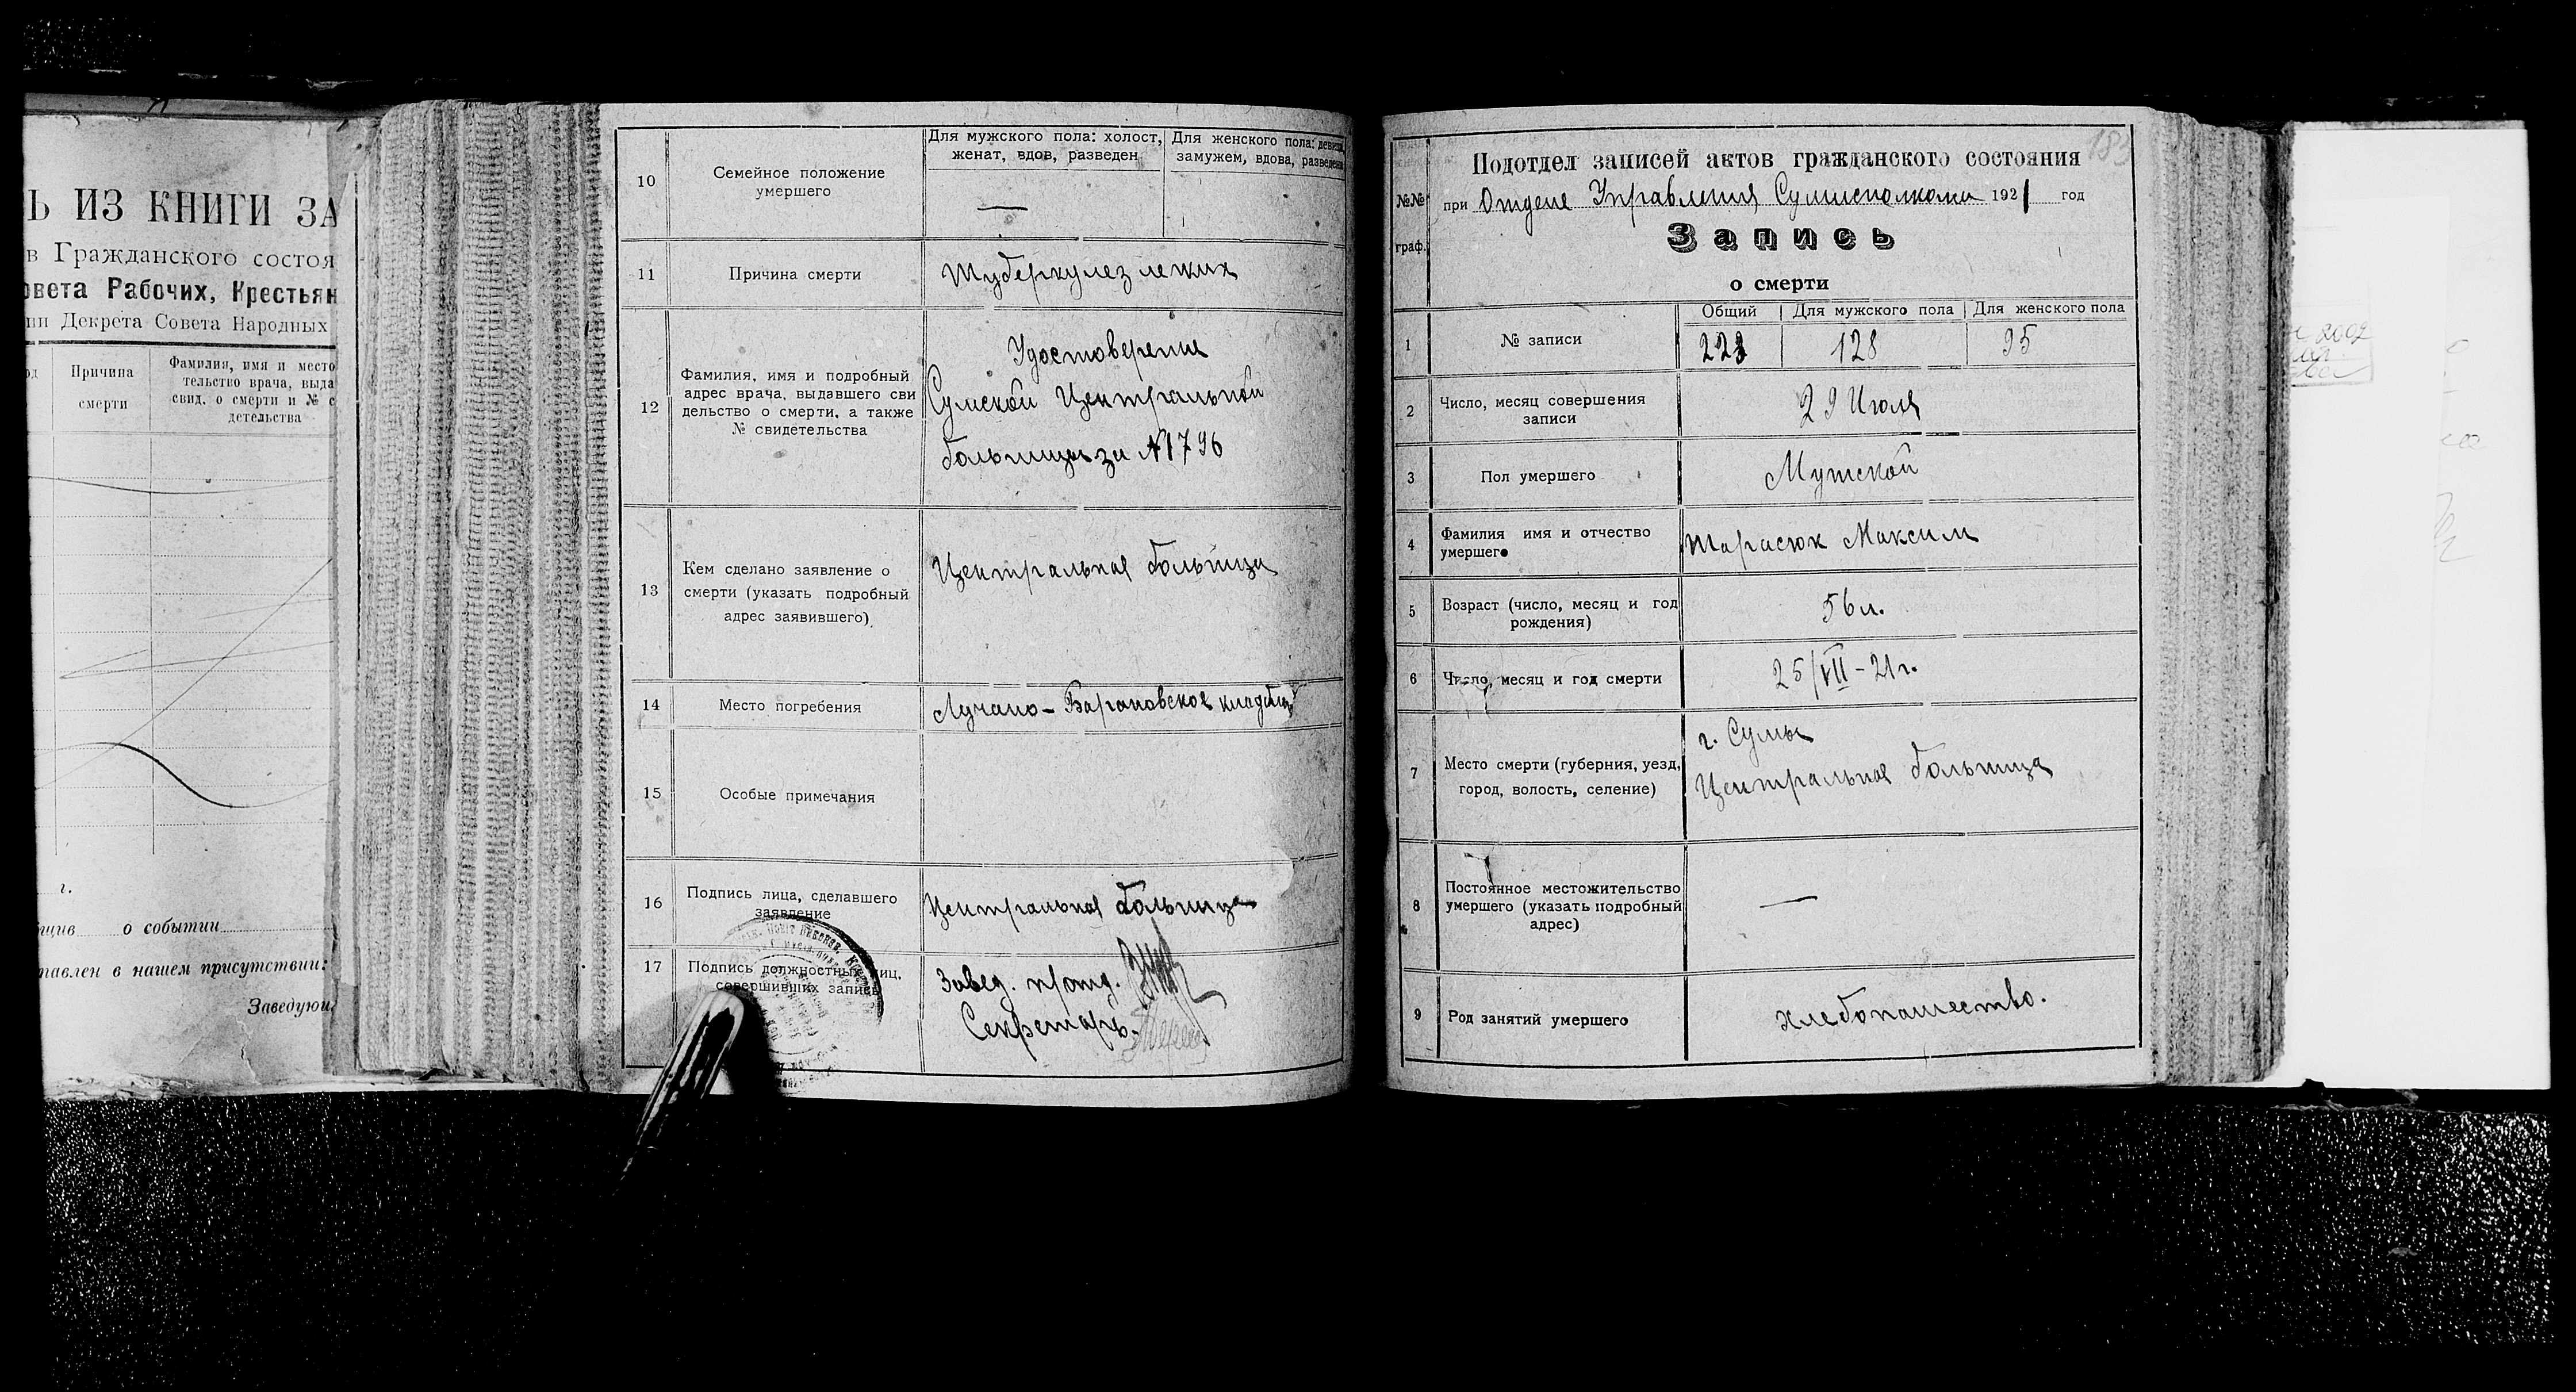 Ь ИЗ КНИГИ ЗА
в Гражданского состоя
овета Рабочих, Крестьян
ии Декрета Совета Народных
Причина
смерти
Фамилия, имя и место
тельство врача, выда
свид. о смерти и № с
детельства
г.
о событии
тавлен в нашем присутствии:
Заведующ
10
Семейное положение
умершего
Для мужского пола: холост,
женат, вдов, разведен
—
Для женского пола: девица
замужем, вдова, разведена
11
Причина смерти
Туберкулез легких
12
Фамилия, имя и подробный
адрес врача, выдавшего сви
дельство о смерти, а также
№ свидетельства
Удостоверение
Сумской Центральной
больницы за №1796
13
Кем сделано заявление о
смерти (указать подробный
адрес заявившего)
Центральная больница
14
Место погребения
Лучано-Барановское кладбищ
15
Особые примечания
16
Подпись лица, сделавшего
заявление
Центральная больница
17
Подпись должностных лиц,
совершивших запись
Завед. п/отд.
Секретарь.
183
№№
граф.
Подотдел записей актов гражданского состояния
при Отделе Управления Сумисполкома 1921 год
Запись
о смерти
1
№ записи
Общий
Для мужского пола
Для женского пола
223
128
95
2
Число, месяц совершения
записи
29 Июля
3
Пол умершего
Мужской
4
Фамилия имя и отчество
умершего
Тарасюк Максим
5
Возраст (число, месяц и год
рождения)
56 л.
6
Число, месяц и год смерти
25/VII-21 г.
7
Место смерти (губерния, уезд,
город, волость, селение)
г. Сумы
Центральная больница
8
Постоянное местожительство
умершего (указать подробный
адрес)
—
9
Род занятий умершего
Хлебопашество.